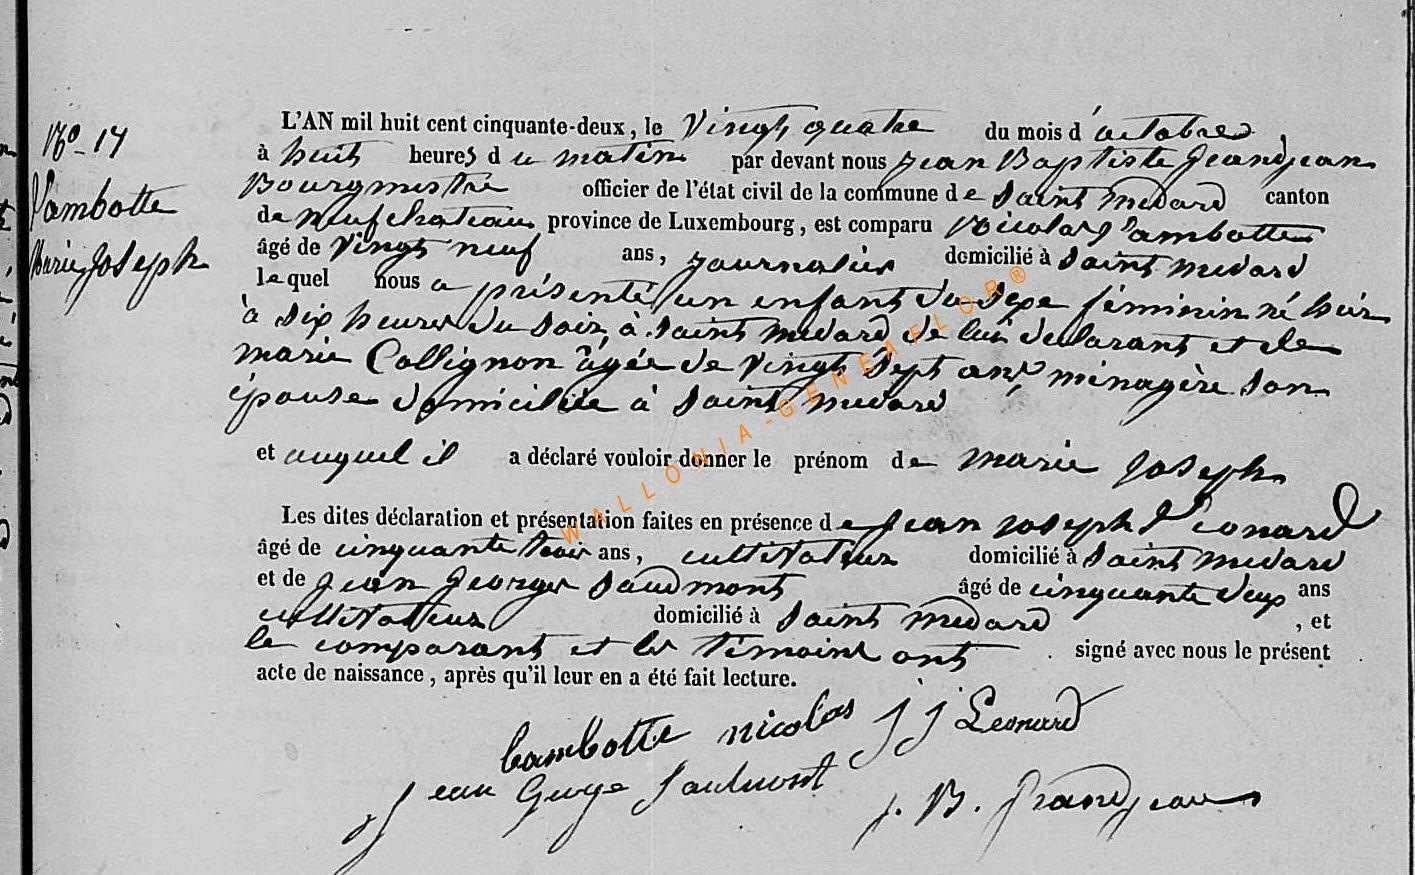 No 17
Lambotte
Marie Joseph
L'AN mil huit cent cinquante-deux, le vingt quatre du mois d'octobre,
à huit heures du matin par devant nous Jean Baptiste Grandjean
Bourgmestre officier de l'état civil de la commune de Saint Medard canton
de Neufchateau province de Luxembourg, est comparu Nicolas Lambotte
âgé de vingt neuf ans, journalier domicilié à Saint Medard
lequel nous a présenté un enfant du sexe féminin né hier
à six heures du soir, à Saint Medard de lui déclarant et de
marie Collignon âgée de vingt sept ans ménagère son
épouse domiciliée à Saint Medard
et auquel il a déclaré vouloir donner le prénom de marie Joseph
Les dites déclaration et présentation faites en présence de Jean Joseph Léonard
âgé de cinquante trois ans, cultivateur domicilié à Saint Medard
et de Jean Georges Saudmont âgé de cinquante deux ans
cultivateur domicilié à Saint Medard, et
le comparant et les témoins ont signé avec nous le présent
acte de naissance, après qu'il leur en a été fait lecture.
Lambotte nicolas J J Leonard
Jean George Saudmont
J. B. Grandjean
WALLONIA-GENEAFLOR®